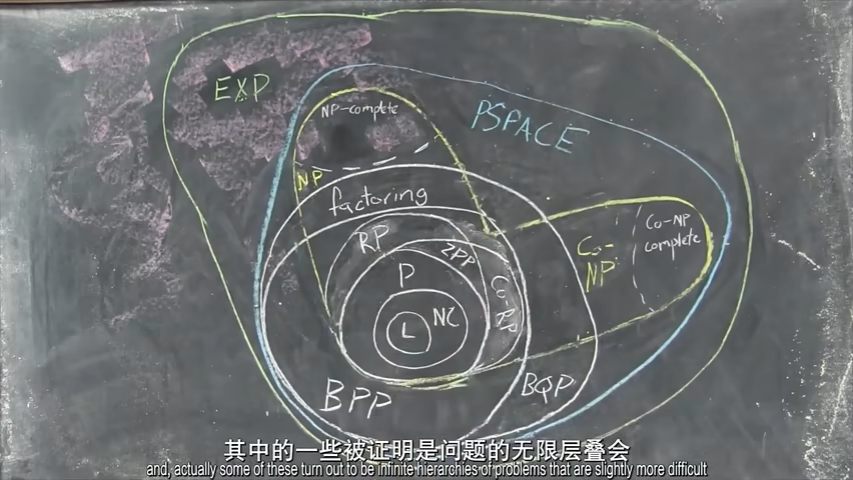 EXP
NP-complete
PSPACE
NP
factoring
Co-NP
complete
RP
ZPP
Co-
NP
P
Co-RP
NC
L
BPP
BQP
其中的一些被证明是问题的无限层叠会
and, actually some of these turn out to be infinite hierarchies of problems that are slightly more difficult